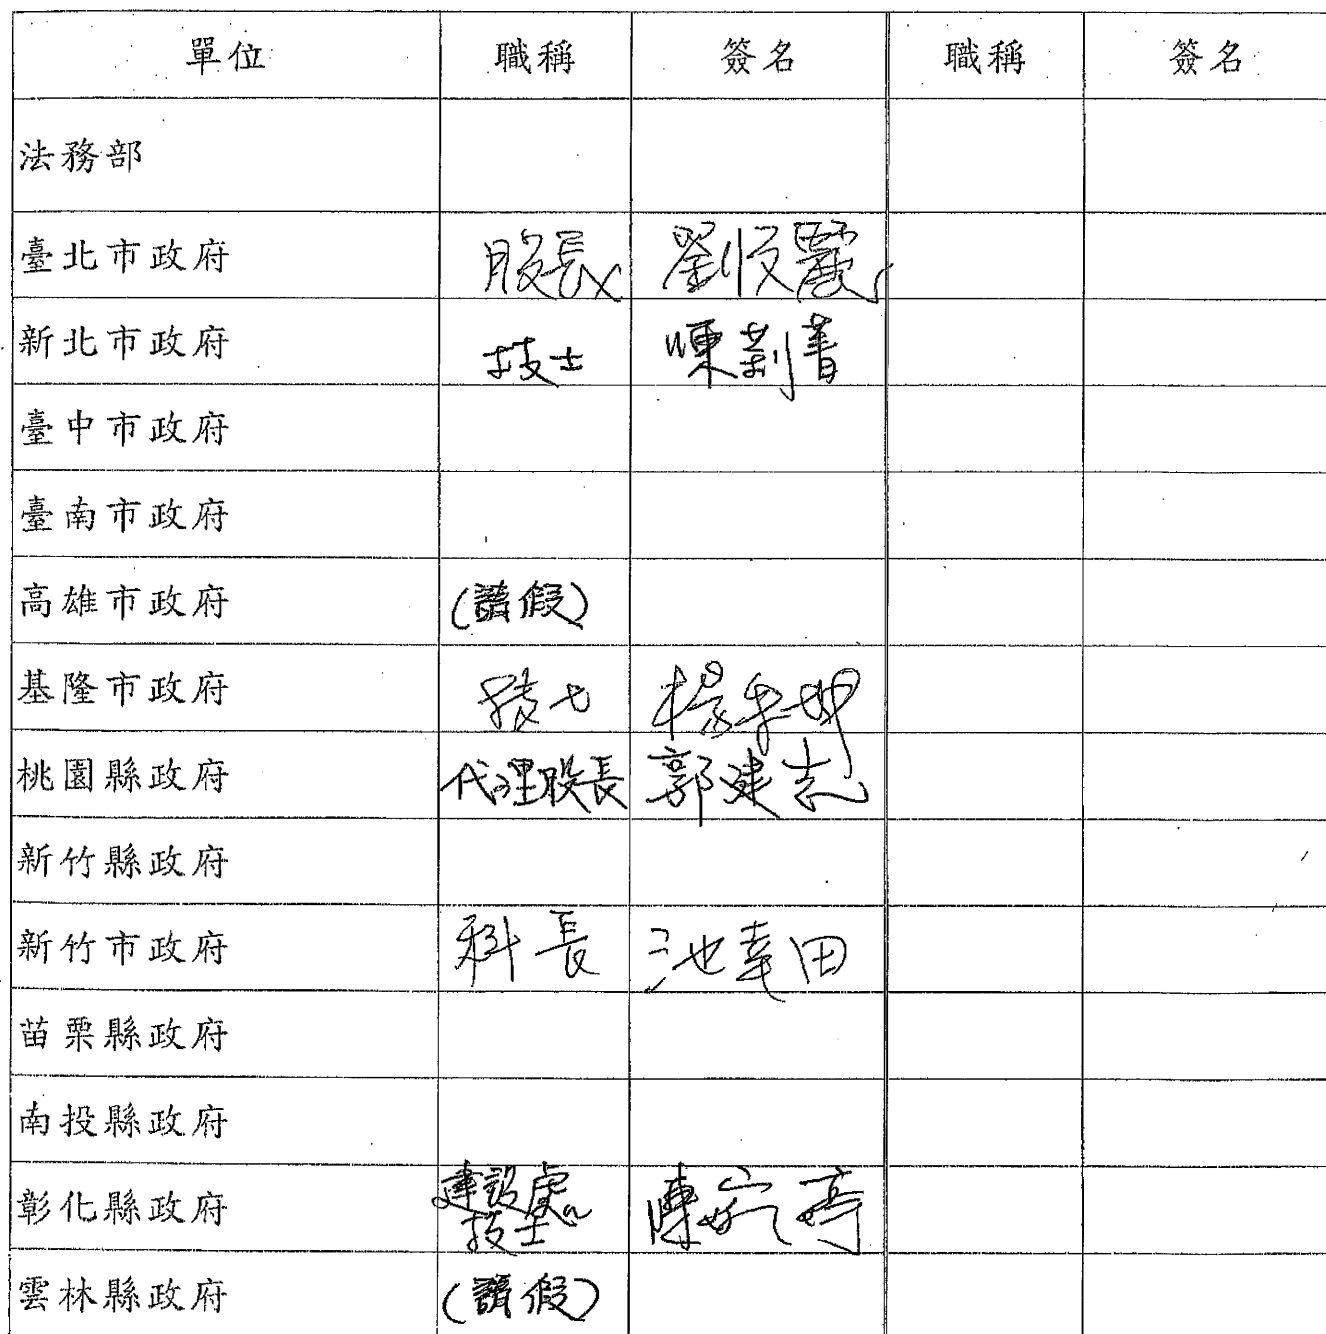 單位 職稱 簽名 職稱 簽名
法務部
臺北市政府 股長 劉
新北市政府 技士 陳
臺中市政府
臺南市政府
高雄市政府 (請假)
基隆市政府 技士 楊
桃園縣政府 代理股長 郭建志
新竹縣政府
新竹市政府 科長 池幸田
苗栗縣政府
南投縣政府
彰化縣政府 建設處 陳
技士
雲林縣政府 (請假)